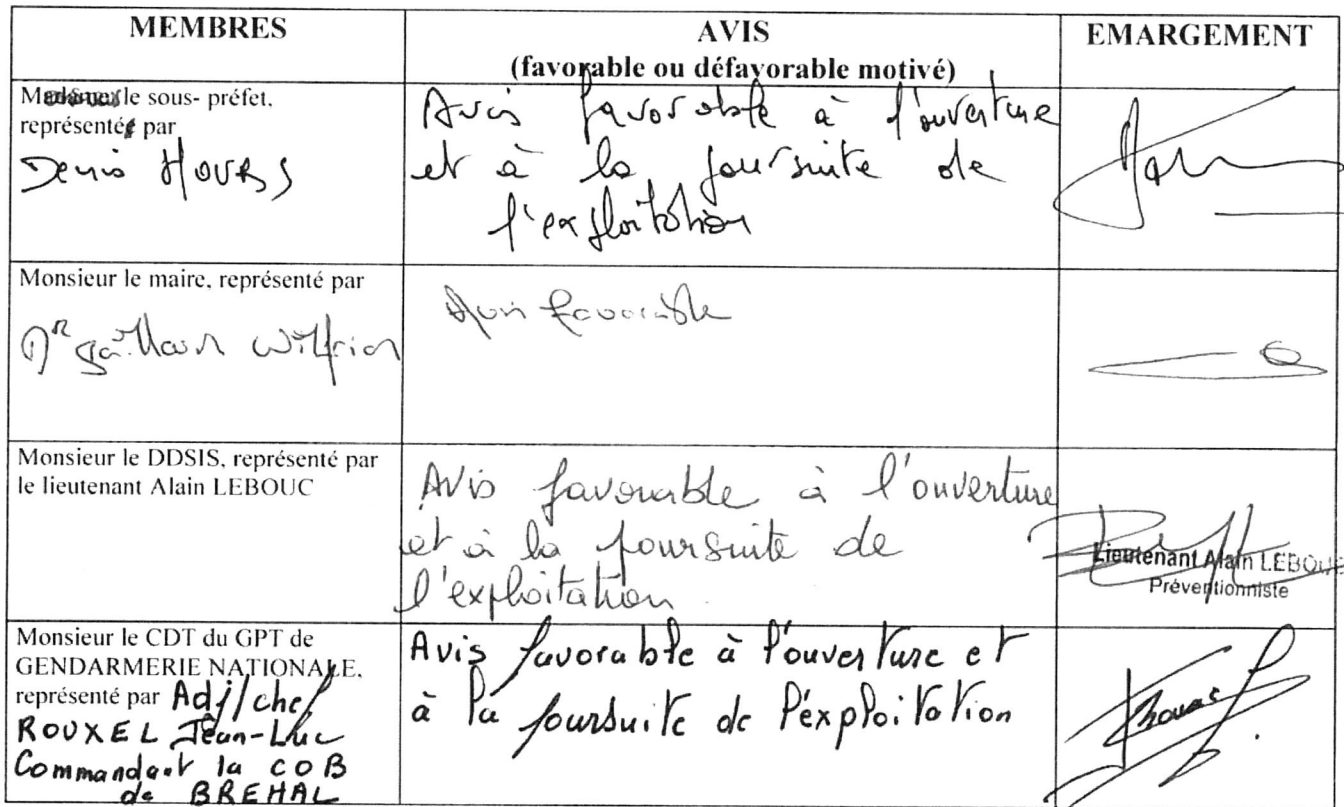 MEMBRES
AVIS
(favorable ou défavorable motivé)
EMARGEMENT
le sous- préfet,
représenté par
Denis HOURS
Avis favorable à l'ouverture
et à la poursuite de
l'exploitation
Monsieur le maire, représenté par
Avis favorable
Monsieur le DDSIS, représenté par
le lieutenant Alain LEBOUC
Avis favorable à l'ouverture
et à la poursuite de
l'exploitation
Lieutenant Alain LEBOUC
Préventionniste
Monsieur le CDT du GPT de
GENDARMERIE NATIONALE,
représenté par Adj/chef
ROUXEL Jean-Luc
Commandant la COB
de BREHAL
Avis favorable à l'ouverture et
à la poursuite de l'éxploitation